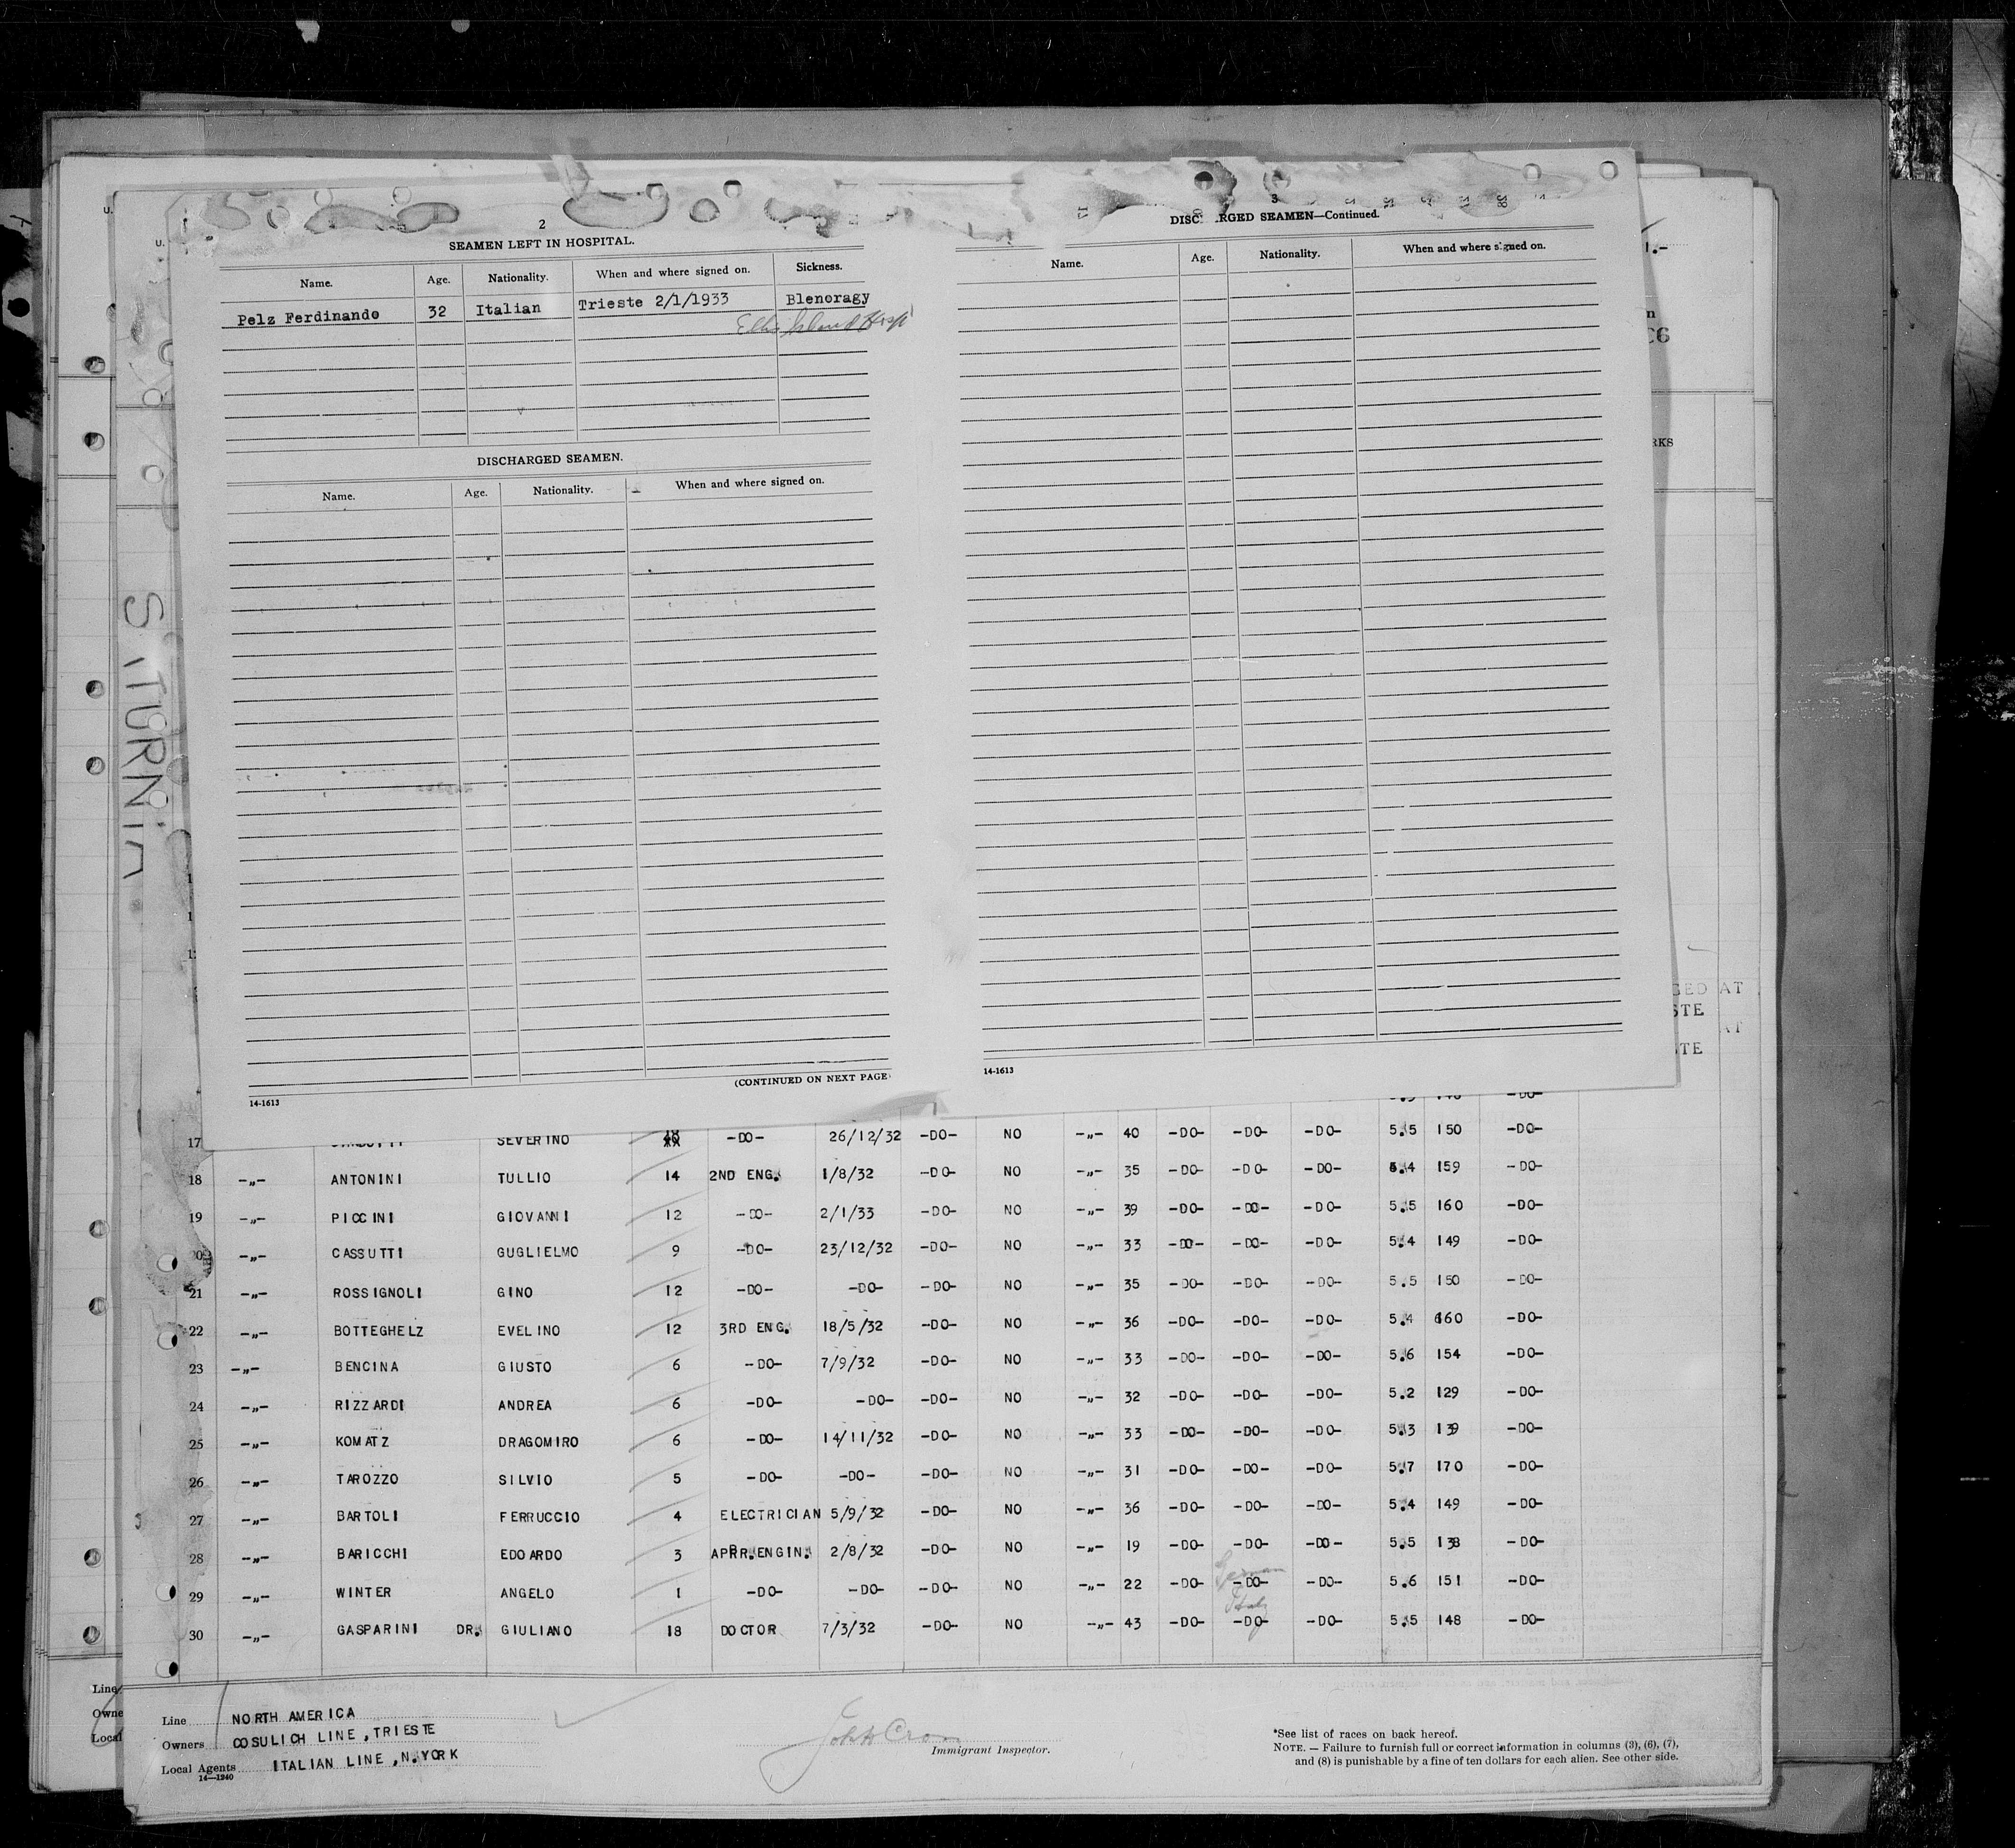 2
SEAMEN LEFT IN HOSPITAL.
Name. Age. Nationality. When and where signed on. Sickness.
Pelz Ferdinando 32 Italian Trieste 2/1/1933 Blenoragy
Ellis Island Hosp
DISCHARGED SEAMEN.
Name. Age. Nationality. When and where signed on.
(CONTINUED ON NEXT PAGE
14-1613
3
DISC RGED SEAMEN—Continued.
Name. Age. Nationality. When and where signed on.
14-1613
RKS
GED AT
STE
AT
TE
17 SEVERINO -DO- 26/12/32 -DO- NO -„- 40 -DO- -DO- -DO- 5.5 150 -DO-
18 -„- ANTONINI TULLIO 14 2ND ENG. 1/8/32 -DO- NO -„- 35 -DO- -DO- -DO- 5.4 159 -DO-
19 -„- PICCINI GIOVANNI 12 -DO- 2/1/33 -DO- NO -„- 39 -DO- -DO- -DO- 5.5 160 -DO-
20 -„- CASSUTTI GUGLIELMO 9 -DO- 23/12/32 -DO- NO -„- 33 -DO- -DO- -DO- 5.4 149 -DO-
21 -„- ROSSIGNOLI GINO 12 -DO- -DO- -DO- NO -„- 35 -DO- -DO- -DO- 5.5 150 -DO-
22 -„- BOTTEGHELZ EVELINO 12 3RD ENG. 18/5/32 -DO- NO -„- 36 -DO- -DO- -DO- 5.4 160 -DO-
23 -„- BENCINA GIUSTO 6 -DO- 7/9/32 -DO- NO -„- 33 -DO- -DO- -DO- 5.6 154 -DO-
24 -„- RIZZARDI ANDREA 6 -DO- -DO- -DO- NO -„- 32 -DO- -DO- -DO- 5.2 129 -DO-
25 -„- KOMATZ DRAGOMIRO 6 -DO- 14/11/32 -DO- NO -„- 33 -DO- -DO- -DO- 5.3 139 -DO-
26 -„- TAROZZO SILVIO 5 -DO- -DO- -DO- NO -„- 31 -DO- -DO- -DO- 5.7 170 -DO-
27 -„- BARTOLI FERRUCCIO 4 ELECTRICIAN 5/9/32 -DO- NO -„- 36 -DO- -DO- -DO- 5.4 149 -DO-
28 -„- BARICCHI EDOARDO 3 APPR.ENGIN. 2/8/32 -DO- NO -„- 19 -DO- -DO- -DO- 5.5 138 -DO-
German
29 -„- WINTER ANGELO 1 -DO- -DO- -DO- NO -„- 22 -DO- -DO- -DO- 5.6 151 -DO-
Italy
30 -„- GASPARINI DR. GIULIANO 18 DOCTOR 7/3/32 -DO- NO -„- 43 -DO- -DO- -DO- 5.5 148 -DO-
Line
Owne
Local
Line NORTH AMERICA
Owners COSULICH LINE, TRIESTE
Local Agents ITALIAN LINE, N.YORK
14—1240
Immigrant Inspector.
*See list of races on back hereof.
NOTE. — Failure to furnish full or correct information in columns (3), (6), (7),
and (8) is punishable by a fine of ten dollars for each alien. See other side.